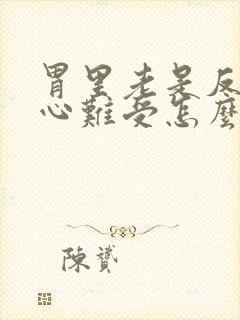 胃里老是反
心難受怎麼
陳贇